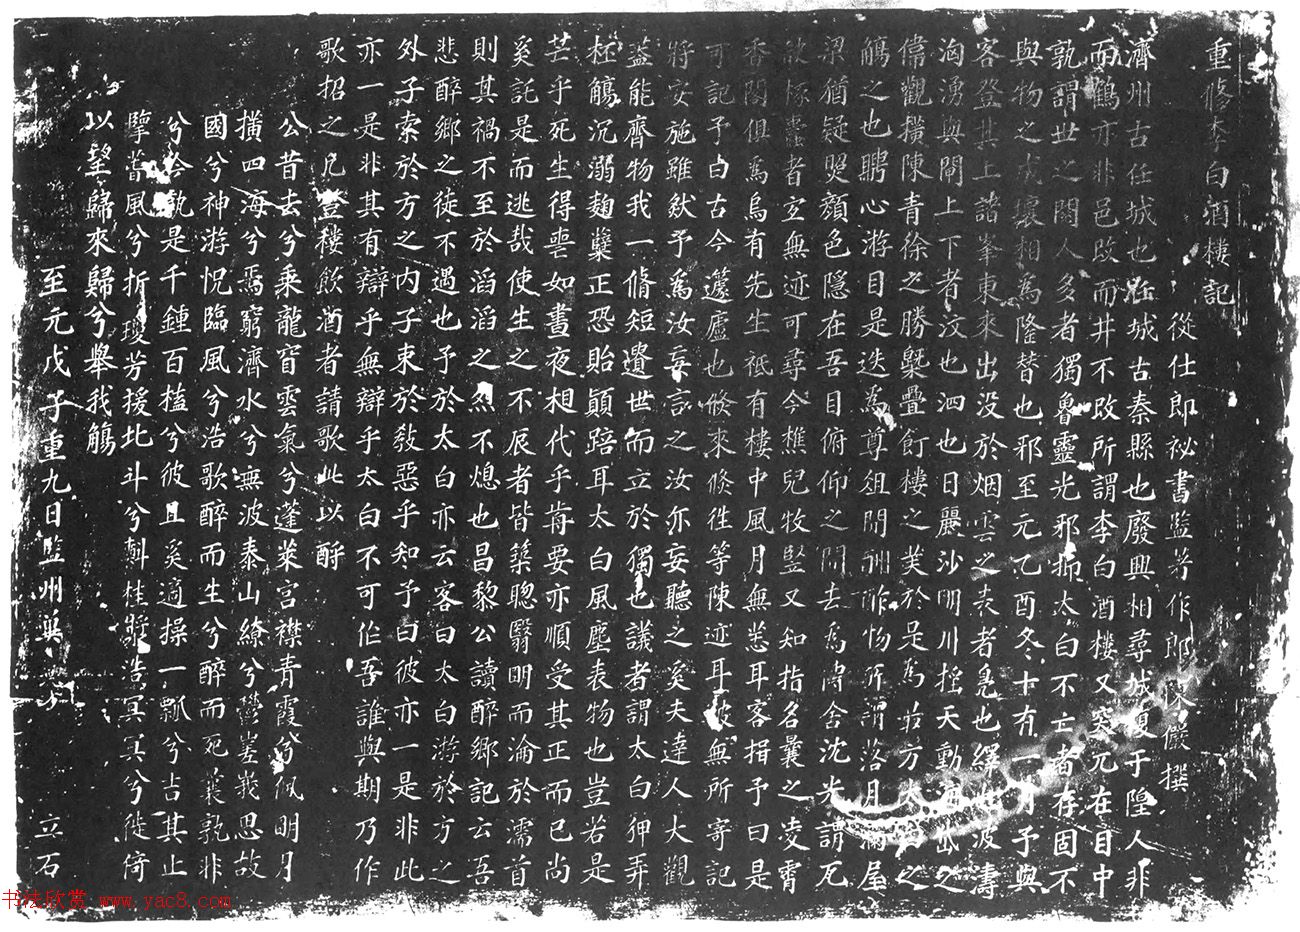 重脩李白酒樓記
從仕郎祕書監著作郎陳儼撰
濟州古任城也任城古秦縣也廢興相尋城復于隍人非
而鶴亦非邑改而井不改所謂李白酒樓又突兀在目中
孰謂世之閱人多者獨魯靈光邪抑太白不亡者存固不
與物之成壞相為隆替也邪至元乙酉冬十有一月予與
客登其上諸峯東來出沒於烟雲之表者鳧也繹也波濤
洶湧與閘上下者汶也泗也日麗沙明川搖天動
偉觀橫陳青徐之勝槩疊飣樓之美於是為
觴之也騁心游目是迭為尊俎間酬酢物所謂落月滿屋
梁猶疑煚顏色隱在吾目俯仰之間去為 舍沈光謂瓦
欲椓蠹者寔無迹可尋今樵兒牧豎又知指名曩之凌霄
香閣俱為烏有先生祗有樓中風月無恙耳客揖予曰是
可記予曰古今蘧廬也倐來倐徃等陳迹耳彼無所寄記
將安施雖然予為汝妄言之汝亦妄聽之奚夫達人大觀
盖能齊物我一脩短遺世而立於獨也議者謂太白狎弄
杯觴沉溺麹櫱正恐貽顛踣耳太白風塵表物也豈若是
芒乎死生得喪如晝夜相代乎肯要亦順受其正而已尚
奚託是而逃哉使生之不辰者皆築聰翳明而淪於濡首
則其禍不至於滔滔之烈不熄也昌黎公讀醉鄉記云吾
悲醉鄉之徒不遇也予於太白亦云客曰太白游於方之
外子索於方之內子束於教惡乎知予曰彼亦一是非此
亦一是非其有辯乎無辯乎太白不可作吾誰與期乃作
歌招之凡登樓飲酒者請歌此以酹
公昔去兮乘龍窅雲氣兮蓬萊宮襟青霞兮佩明月
橫四海兮焉窮濟水兮無波泰山繚兮鬱嵳峩思故
國兮神游怳臨風兮浩歌醉而生兮醉而死曩孰非
兮今孰是千鍾百榼兮彼且奚適操一瓢兮吉其止
擥蒼風兮折瓊芳援北斗兮㪺桂漿浩冥冥兮徙倚
以望歸來歸兮舉我觴
至元戊子重九日監州冀 立石
书法欣赏 www.yac8.com